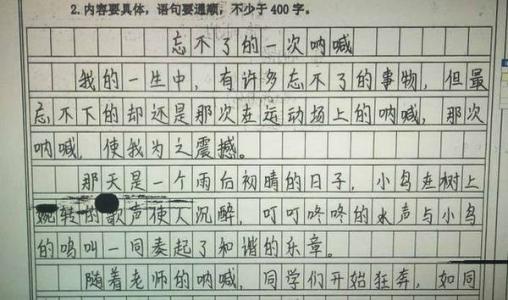 2.内容要具体，语句要通顺，不少于400字。
忘不了的一次呐喊
我的一生中，有许多忘不了的事物，但最
忘不下的却还是那次在运动场上的呐喊，那次
呐喊，使我为之震撼。
那天是一个雨后初晴的日子，小鸟在树上
婉转的歌声使人沉醉，叮叮咚咚的水声与小鸟
的鸣叫一同奏起了和谐的乐章。
随着老师的呐喊，同学们开始狂奔，如同